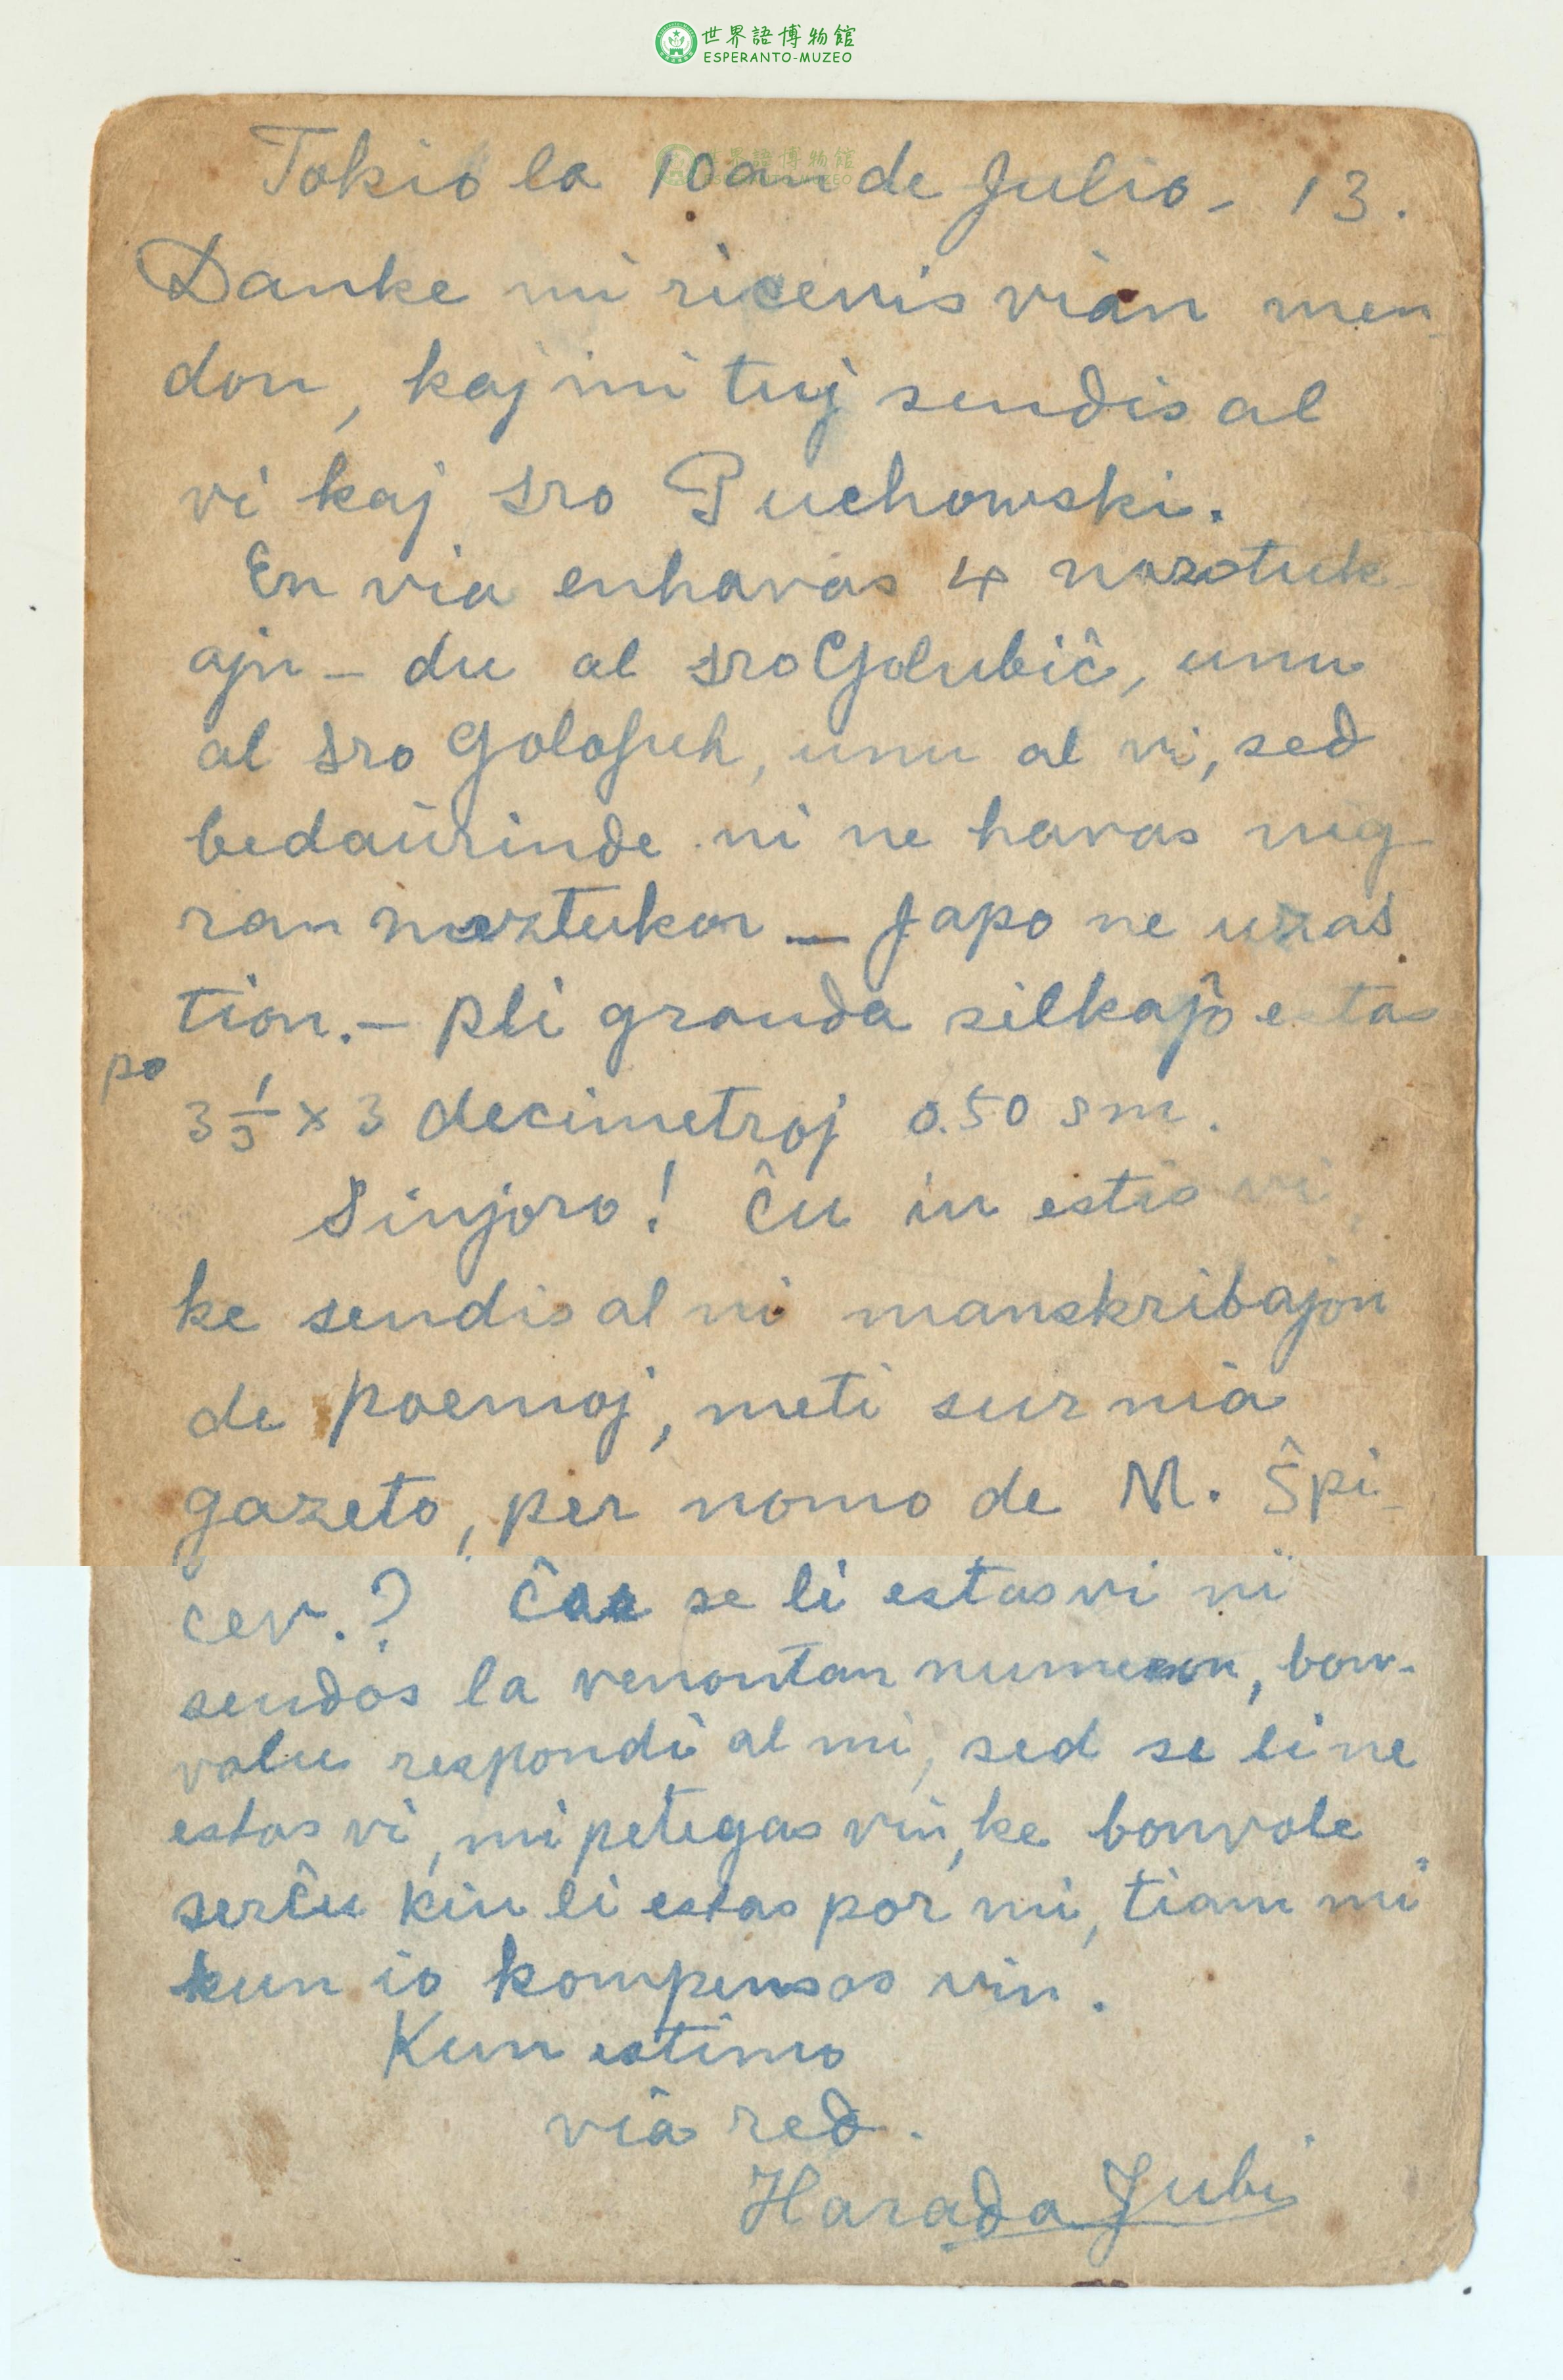 世界語博物館
ESPERANTO-MUZEO
Tokio la 10an de Julio - 13.
Danke mi ricevis vian men-
don, kaj mi tuj sendis al
vi kaj sro Puchowski.
En via enhavas 4 nazotuk-
ajn - du al sro Golubiĉ, unu
al sro, unu al vi, sed
bedaŭrinde ni ne havas nig-
ran naztukon - Japo ne uzas
tion. - pli granda silkaĵo estas
po
3 × 3 decimetroj 0.50 sm.
Sinjoro! Ĉu iu estis vi,
ke sendis al ni manskribajon
de poemoj, meti sur nia
gazeto, per nomo de M. Ŝpi-
cer.? se li estas vi ni
sendos la venontan numeron, bon-
volu respondi al mi, sed se li ne
estas vi, mi petegas vin, ke bonvole
serĉu kiu li estas por mi, tiam mi
kun io kompensos vin.
Kun estimo
via red.
Harada Jubi